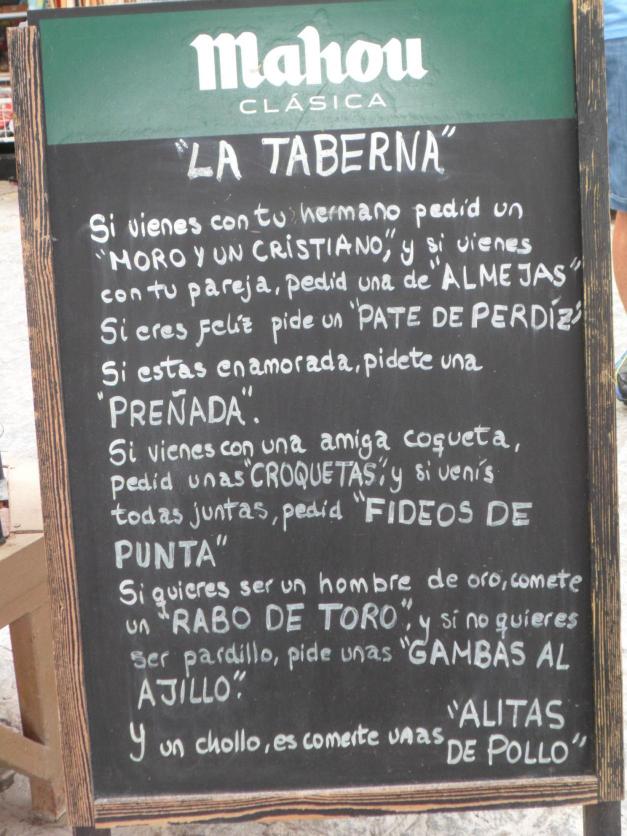 Mahou
CLÁSICA
"LA TABERNA"
Si vienes con tu hermano pedid un
"MORO Y UN CRISTIANO", y si vienes
con tu pareja, pedid una de "ALMEJAS"
Si eres feliz pide un "PATE DE PERDÍZ"
Si estas enamorada, pidete una
"PREÑADA".
Si vienes con una amiga coqueta,
pedid unas "CROQUETAS", y si venís
todas juntas, pedid "FIDEOS DE
PUNTA"
Si quieres ser un hombre de oro, comete
un "RABO DE TORO", y si no quieres
ser pardillo, pide unas "GAMBAS AL
AJILLO".
Y un chollo, es comerte unas "ALITAS
DE POLLO"